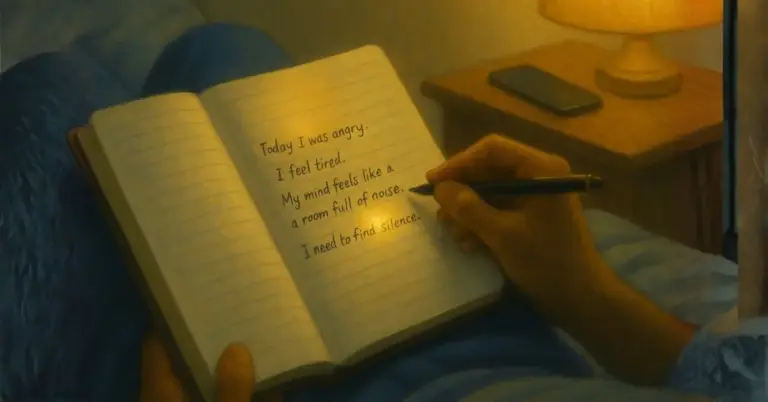 Today I was angry.
I feel tired.
My mind feels like a
a room full of noise.
I need to find silence.